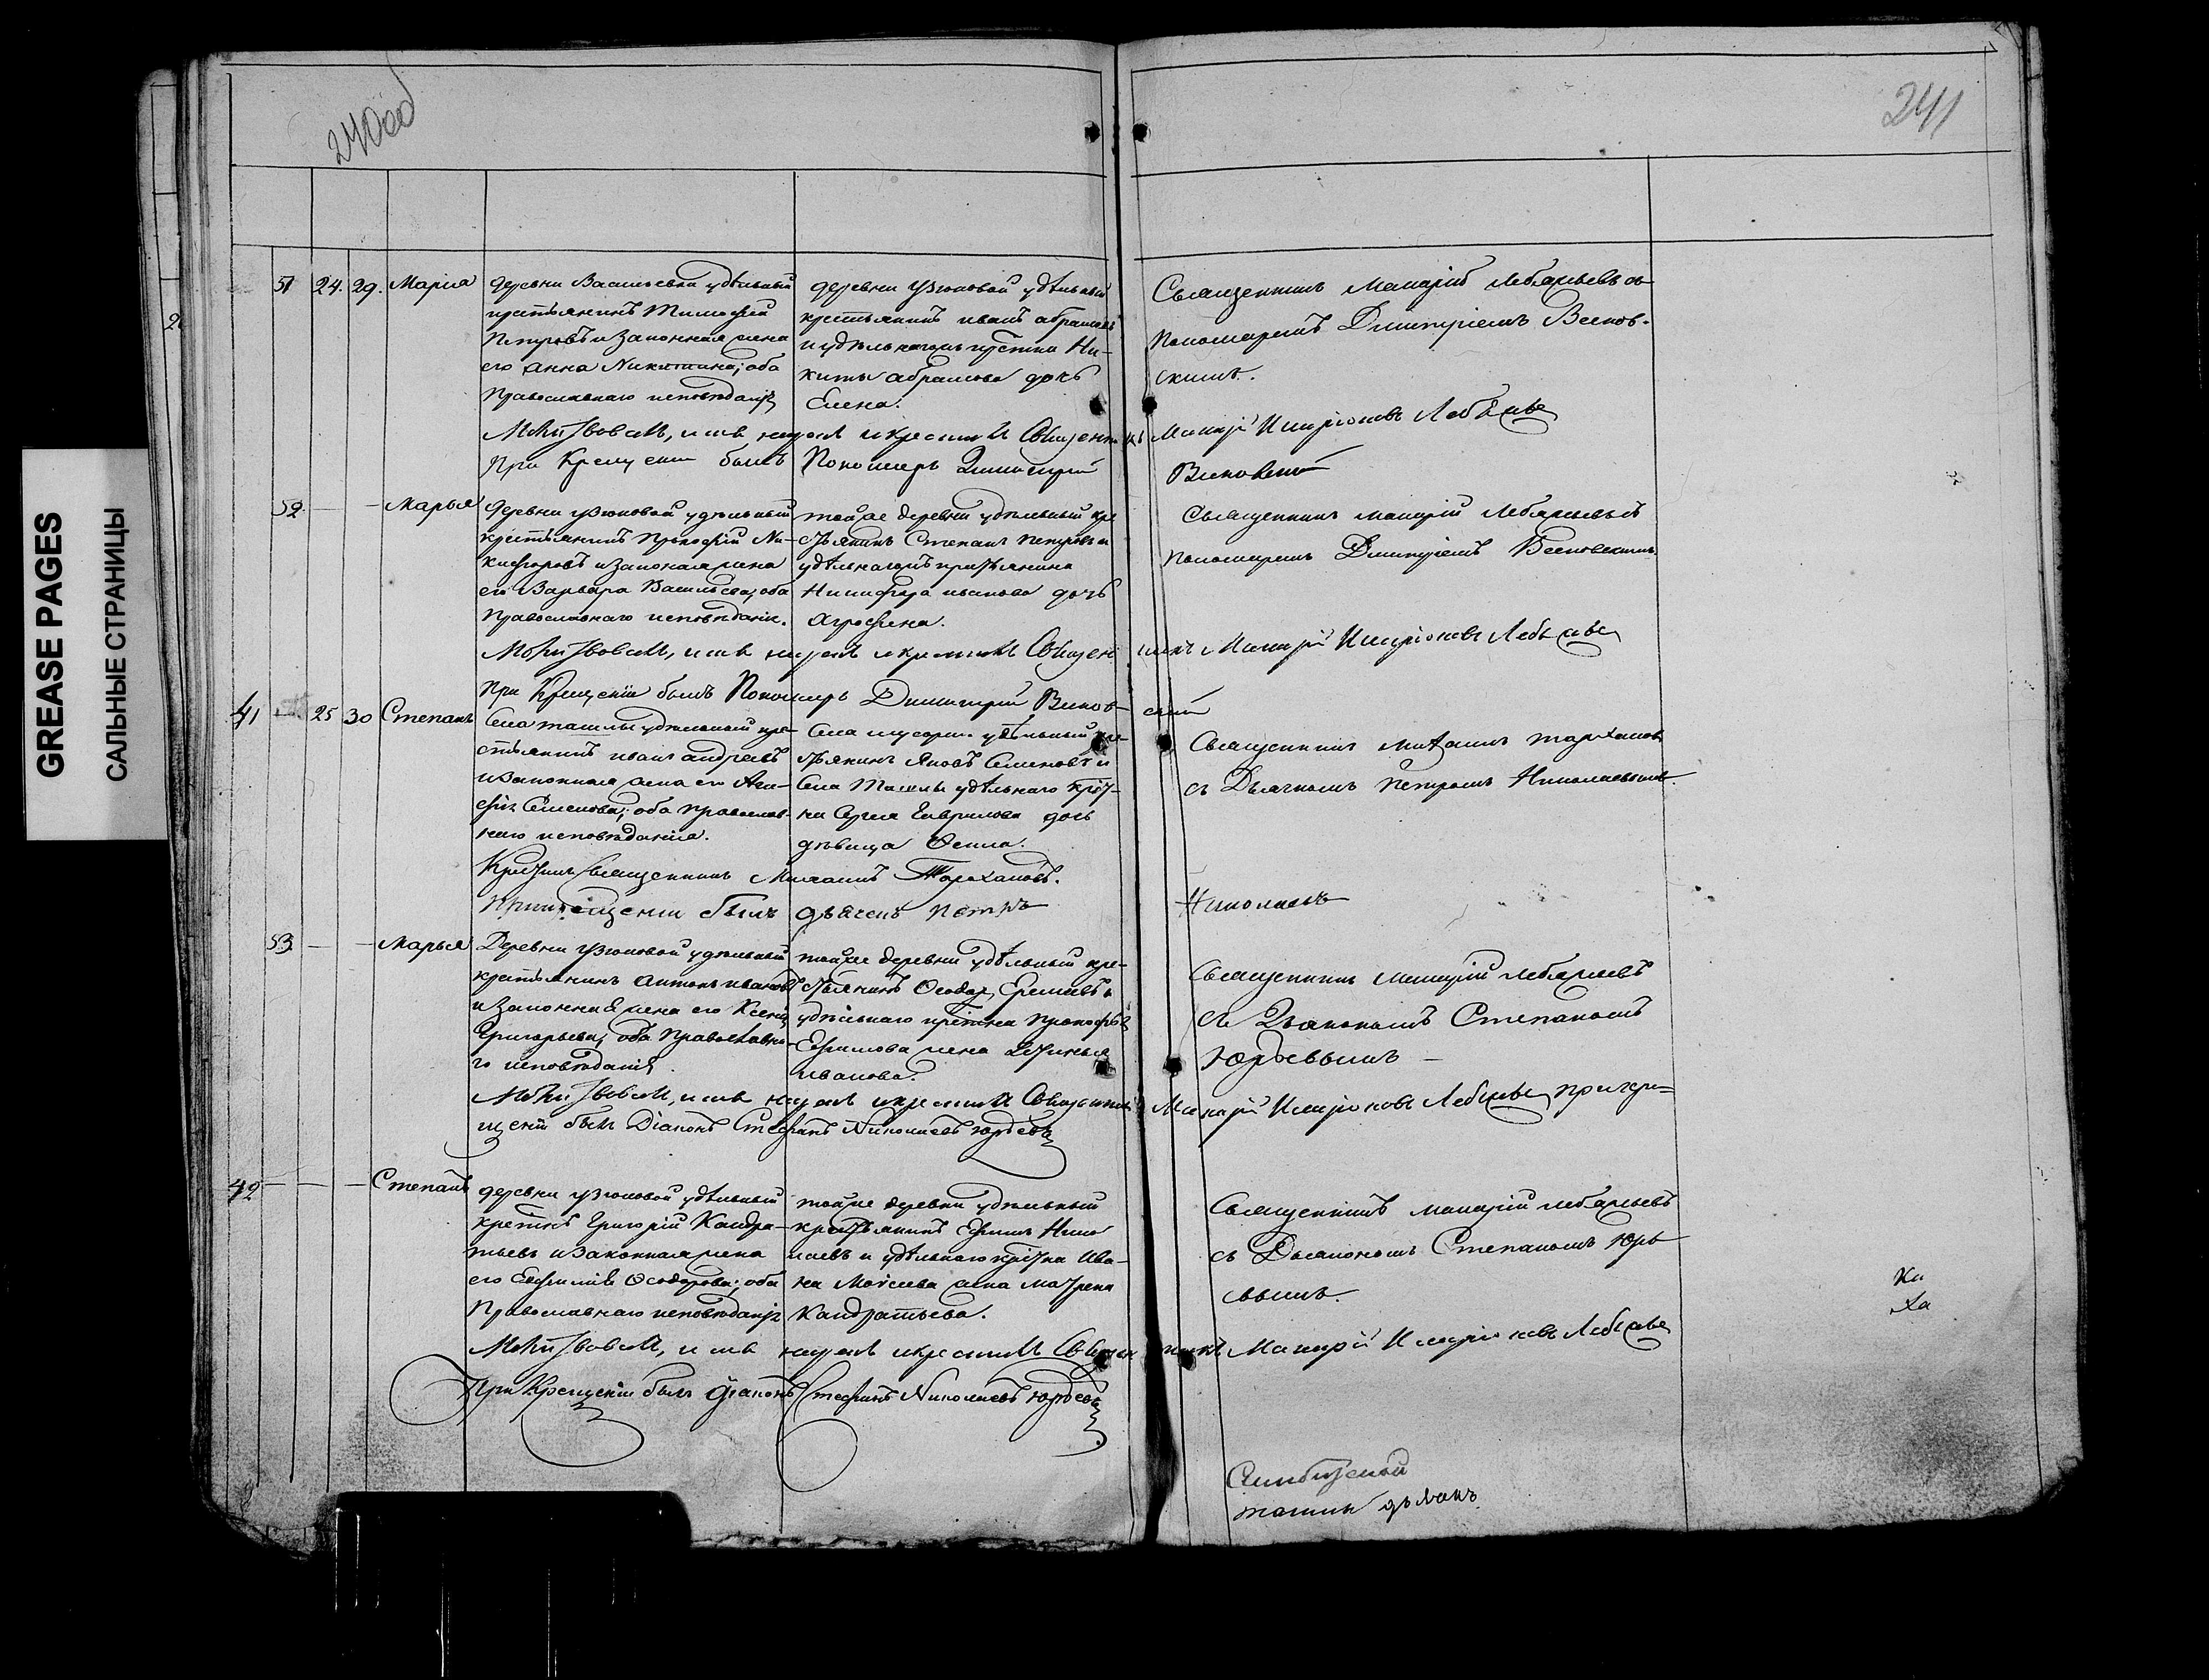 GREASE PAGES
САЛЬНЫЕ СТРАНИЦЫ
240об
241
51 24. 29. Марiа
деревни Васильевки удѣльный
крестьянинъ Тимофей
Петровъ и законная жена
его Анна Никитина; оба
Православнаго исповѣданiя
деревни Узюковой удѣльный
крестьянинъ иванъ абрамовъ
и удѣльнаго крестьнна Ни-
киты абрамова дочь
Елена.
Священникъ Макарiй Лебяжьевъ съ
Пономаремъ Димитрiемъ Весков-
скимъ.
Молитвовалъ, имя нарекъ и крестилъ Священникъ Макарiй Лебяжьев
При Крещенiи былъ Пономарь Димитрiй
52 — — Марья
деревни узюковой удѣльный
крестьянинъ Прокофiй Ни-
кифоровъ и законная жена
его Варвара Васильева; оба
Православнаго исповѣданiя.
той же деревни удѣльный кре
стьянинъ Степанъ Петровъ и
удѣльнаго крестьянина
Никифора иванова дочь
Агрофена.
Священникъ макарiй лебяжьевъ съ
пономаремъ Димитрiемъ Весковскимъ.
Молитвовалъ, имя нарекъ и крестилъ Священникъ Макарiй Лебяжьев
При Крещенiи былъ Пономарь Димитрiй
41 — 25 30 Степанъ
Села ташлы удѣльный кре-
стьянинъ иванъ андреевъ
и законная жена его Ага-
фiя Семенова; оба православ-
наго исповѣданiя.
Села удѣльный кре-
стьянинъ Яковъ Семеновъ и
Села Ташлы удѣльнаго крест-
на Сергея Гаврилова дочь
дѣвица
Священникъ михаилъ тарханов
съ Дьячкомъ Петромъ Николаевымъ.
Крестилъ Священникъ Михаилъ Тархановъ.
При крещенiи былъ дьячекъ Петръ Николаевъ
53 — — Марья
Деревни узюковой удѣльный
крестьянинъ антонъ ивановъ
и законная жена его Ксенiя
Григорьева; оба Православна-
го исповѣданiя.
той же деревни удѣльный кре-
стьянинъ Ѳеодоръ и
удѣльнаго крестьнна Прокофiя
Ефимова жена
иванова.
Священникъ макарiй лебяжьевъ
съ Дьякономъ Степаномъ
Юрьевымъ —
Молитвовалъ, имя нарекъ и крестилъ Священникъ Макарiй Лебяжьев при кре=
щенiи былъ Дiаконъ Стефанъ Николаевъ Юрьевъ
42 — — — Степанъ
деревни узюковой удѣльный
крестнъ Григорiй Кандра-
тьевъ и законная жена
его Евфимiя Ѳеодорова; оба
Православнаго исповѣданiя
той же деревни удѣльный
крестьянинъ Ефимъ Нико
лаевъ и удѣльнаго крестна Ива-
на Моисеева жена Матрена
Кандратьева.
Священникъ макарiй лебяжьевъ
съ Дьякономъ Степаномъ Юрье
вымъ.
Молитвовалъ, имя нарекъ и крестилъ Священникъ Макарiй Лебяжьев
При Крещенiи былъ дiаконъ Стефанъ Николаевъ Юрьевъ
Симбирской